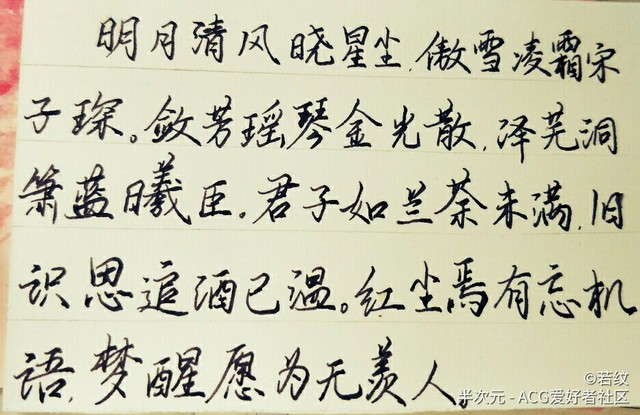 明月清风晓星尘,傲雪凌霜宋
子琛。敛芳瑶琴金光散,泽芜洞
箫蓝曦臣。君子如兰荼未满,旧
识思追酒已温。红尘焉有忘机
语,梦醒愿为无羡人。
©若纹
半次元 - ACG爱好者社区